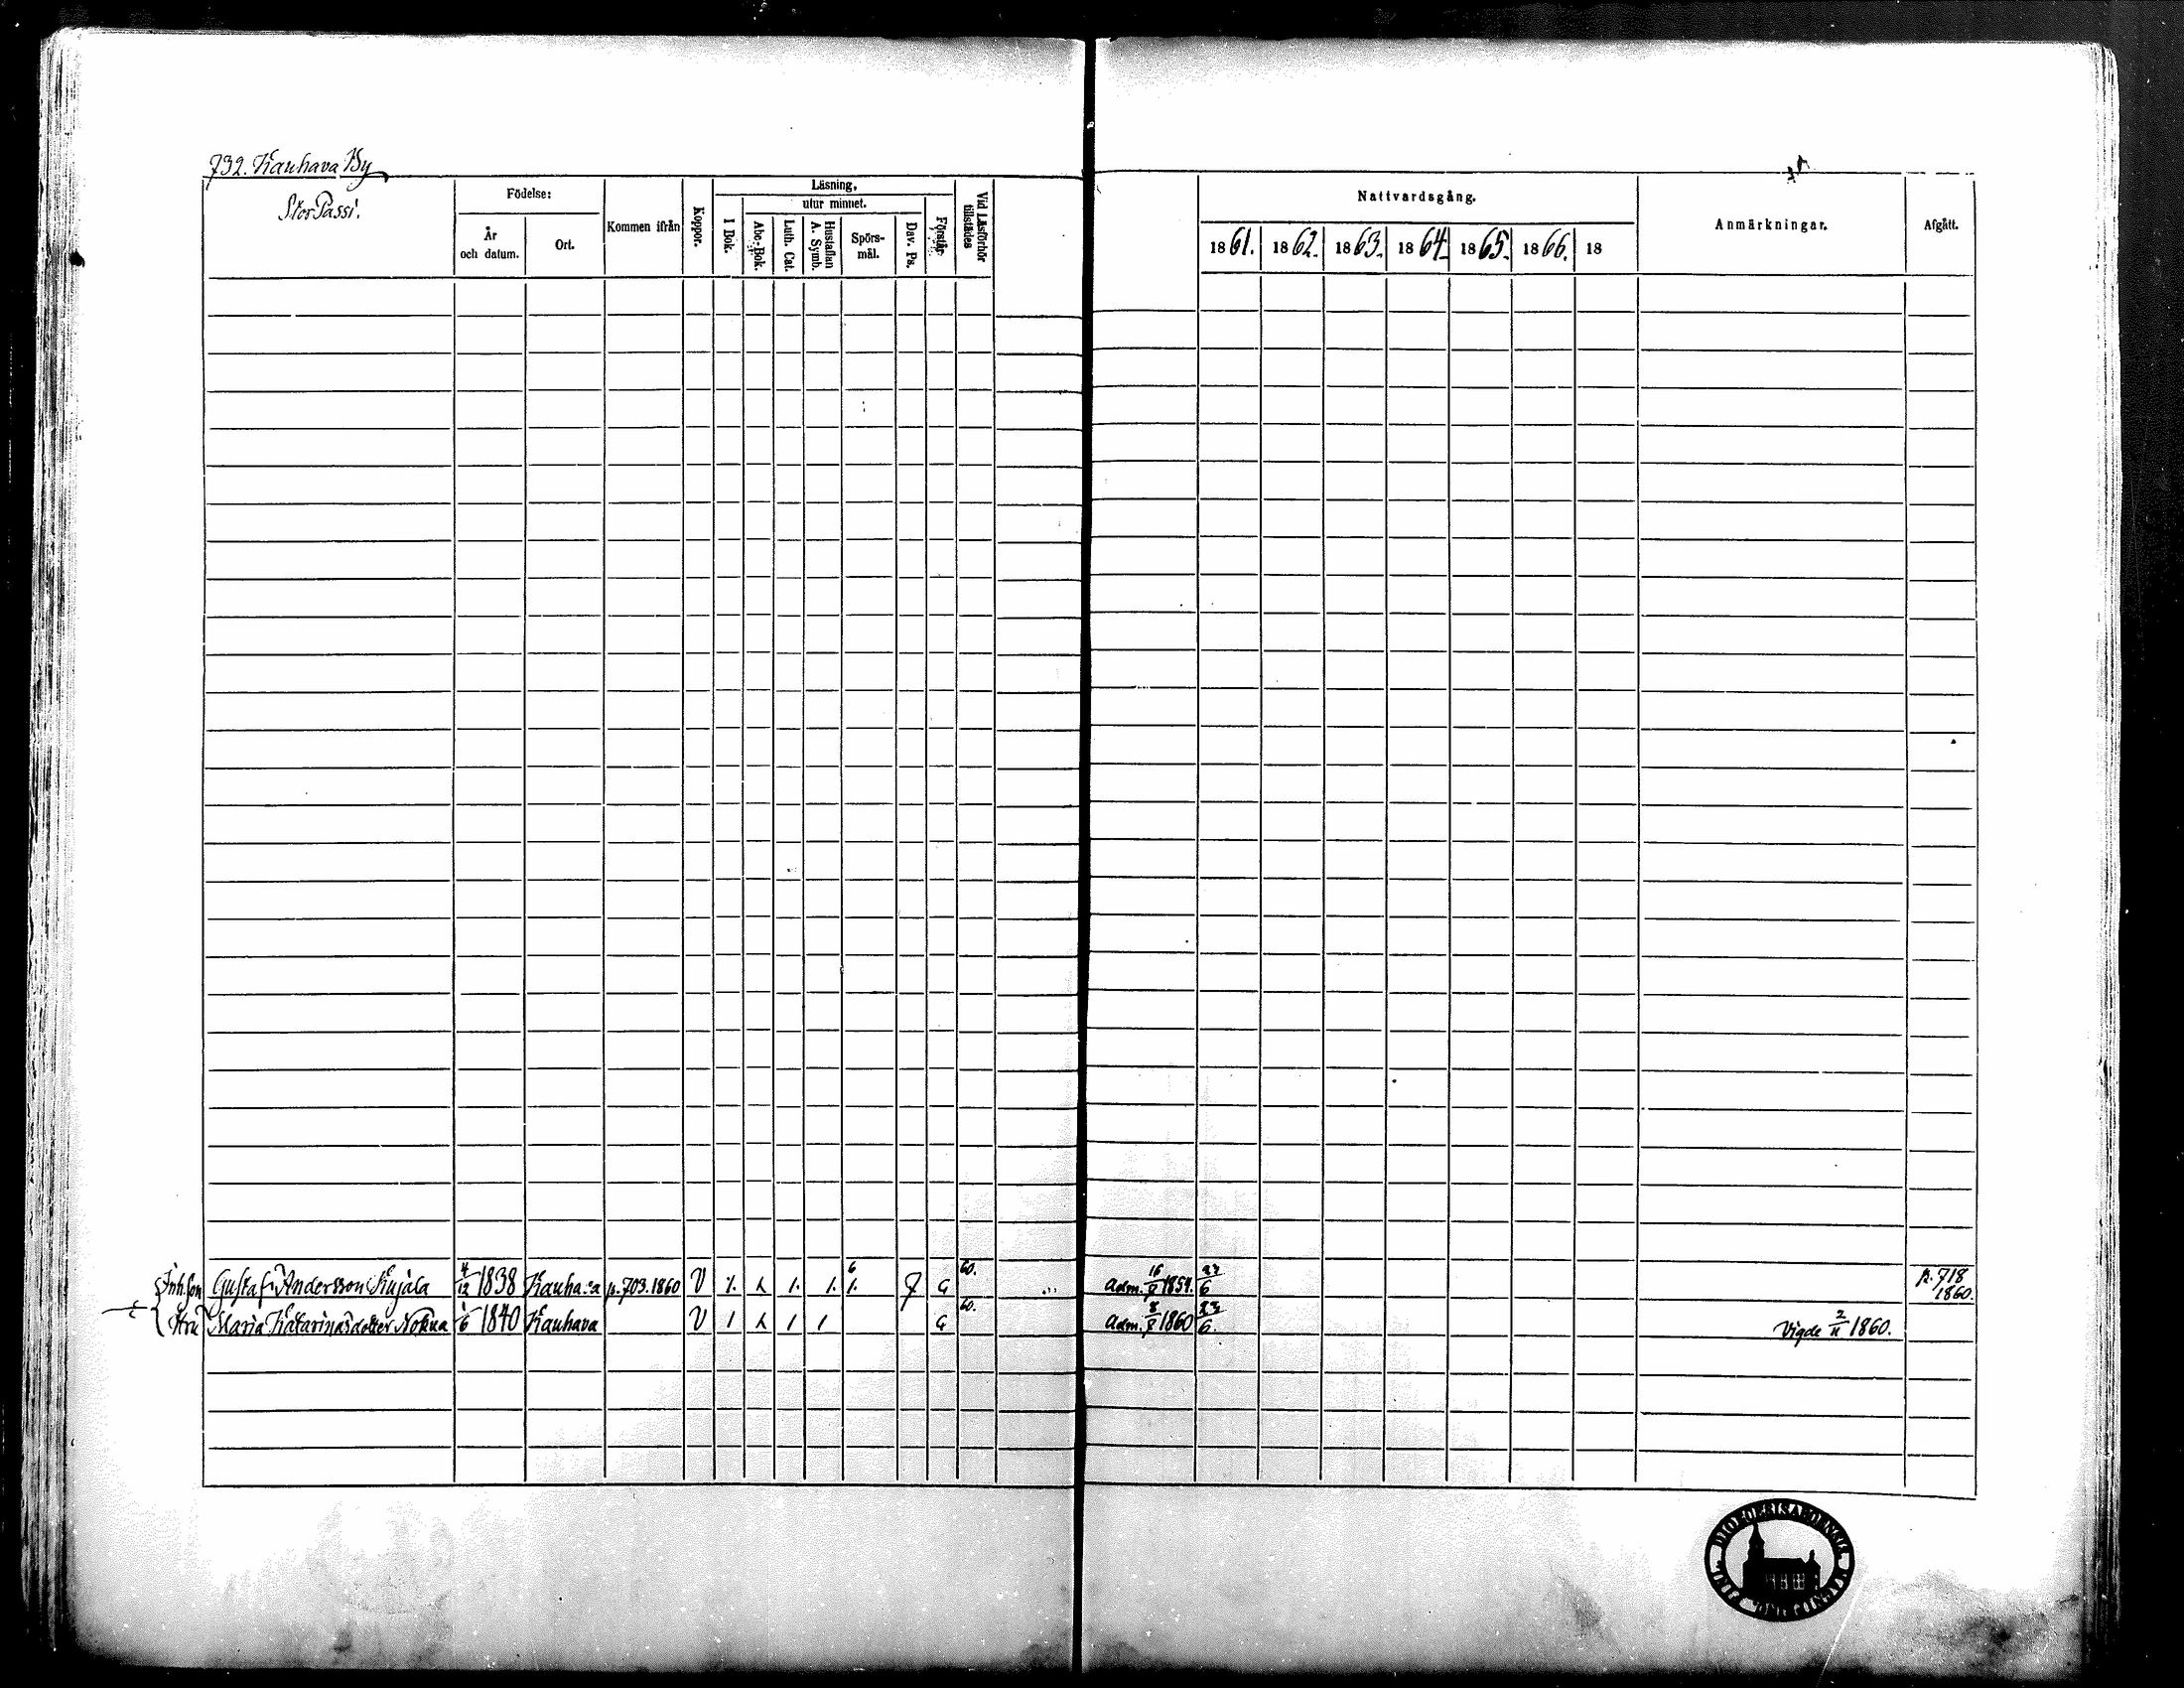 732. Kauhava By
Stor Passi.
Födelse:
År
och datum.
Ort.
Kommen ifrån
Koppor.
Läsning,
utur minnet.
I Bok.
Abc-Bok.
Luth. Cat.
Hustaflan
A. Symb.
Spörs-
mål.
Dav. Ps.
Förstår
Vid Läsförhör
tillstädes
Nattvardsgång.
1861. 1862. 1863. 1864. 1865. 1866. 18
Anmärkningar.
Afgått.
Inh. son Gustaf Andersson Kujala 4/12 1838 Kauhava p. 703. 1860 V 60. Adm. 1859. 6 p. 718 1860.
Maria Katarina 6 1840 Kauhava V 60. Adm. 1860 23/6. Vigde 2/11 1860.